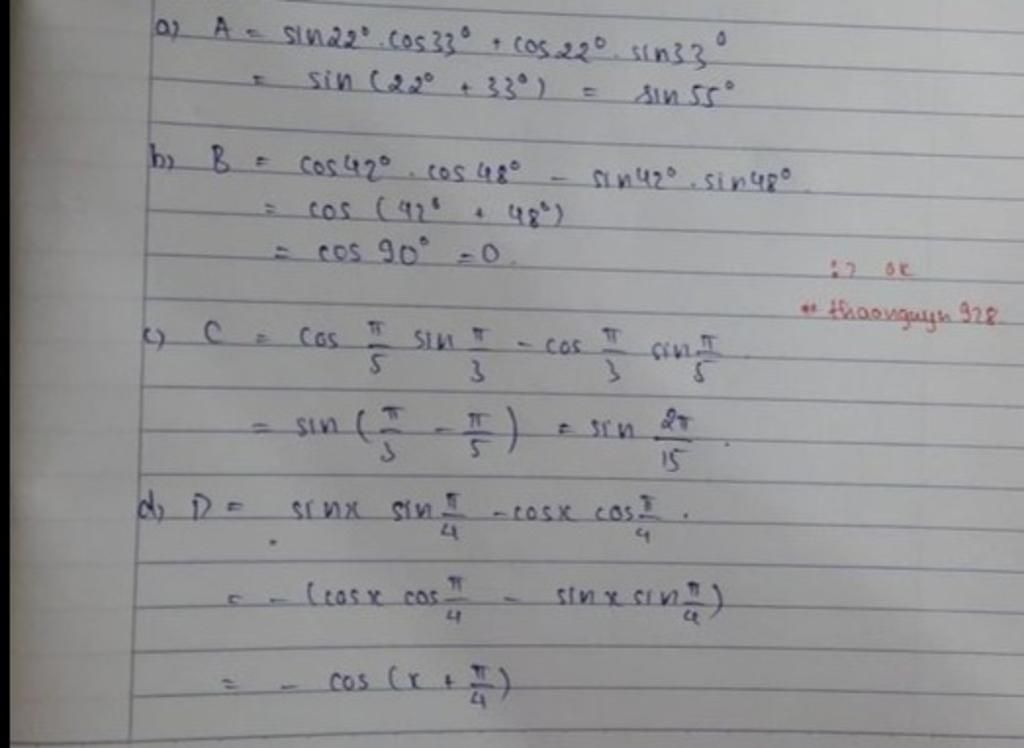 a) A = sin22° . cos33° + cos22° . sin33°
= sin (22° + 33°) = sin 55°
b) B = cos42° . cos48° - sin42° . sin48°
= cos (42° + 48°)
= cos 90° = 0.
:> ok
thaonguyn 928
c) C = cos π/5 sin π/3 - cos π/3 sin π/5
= sin (π/3 - π/5) = sin 2π/15.
d) D = sinx sin π/4 - cosx cos π/4.
= - (cosx cos π/4 - sinx sin π/4)
= - cos (x + π/4)